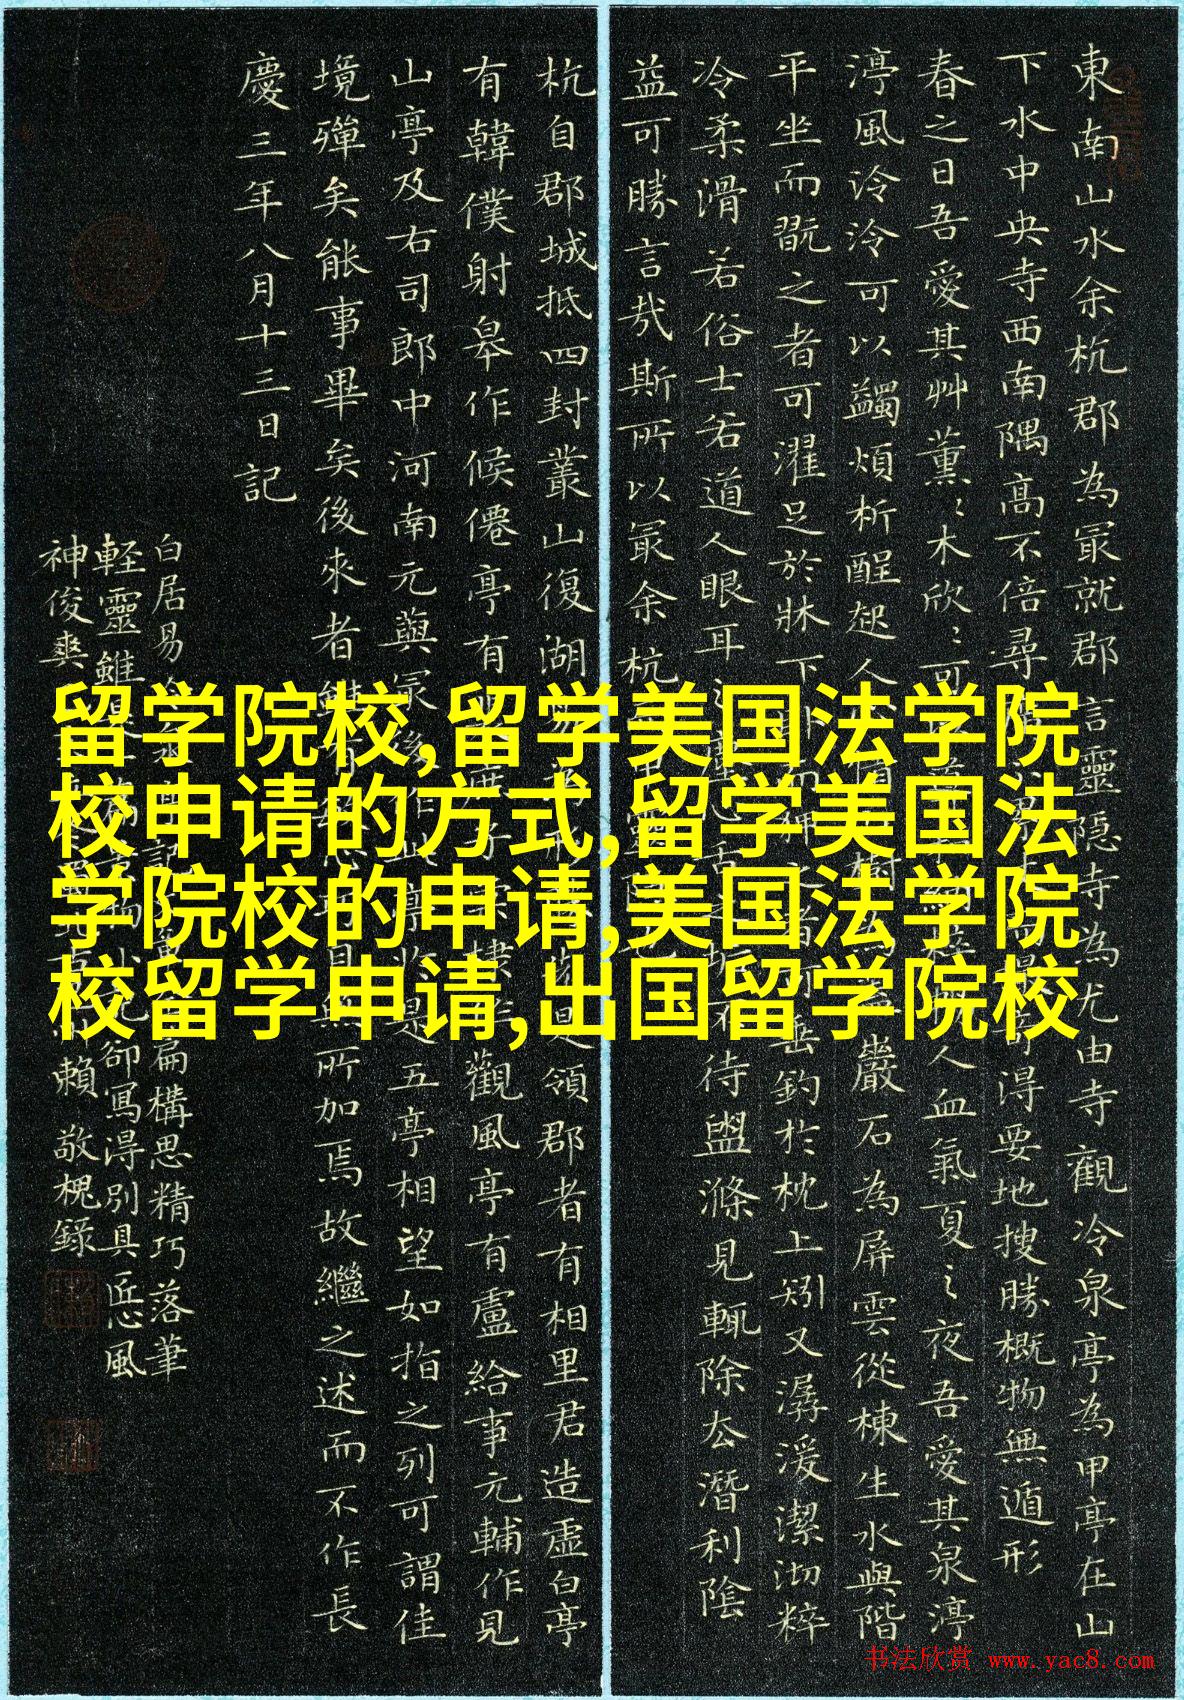 東南山水余杭郡為冣就郡言靈隱寺為尤由寺觀冷泉亭為甲亭在山
下水中央寺西南隅高不倍尋 得要地搜勝概物無遁形
春之日吾愛其艸薰〻木欣〻可 人血氣夏之夜吾愛其泉渟
渟風泠泠可以蠲煩析酲起人 巖石為屏雲從棟生水與階
平坐而翫之者可濯足於牀下 垂釣於枕上矧又潺湲潔沏粹
冷柔滑若俗士若道人眼耳之 待盥滌見輒除去潛利陰
益可勝言哉斯所以冣余杭
杭自郡城抵四封叢山復湖 領郡者有相里君造虛白亭
有韓僕射皋作候僊亭有 觀風亭有盧給事元輔作見
山亭及右司郎中河南元藇冣後作此亭 是五亭相望如指之列可謂佳
境殫矣能事畢矣後來者 所加焉故繼之述而不作長
慶三年八月十三日記
白居易 扁構思精巧落筆
軽靈雖 卻寫得別具匠心風
神俊爽 賴敬槐錄
留学院校,留学美国法学院
校申请的方式,留学美国法
学院校的申请,美国法学院
校留学申请,出国留学院校
书法欣赏 www.yac8.com